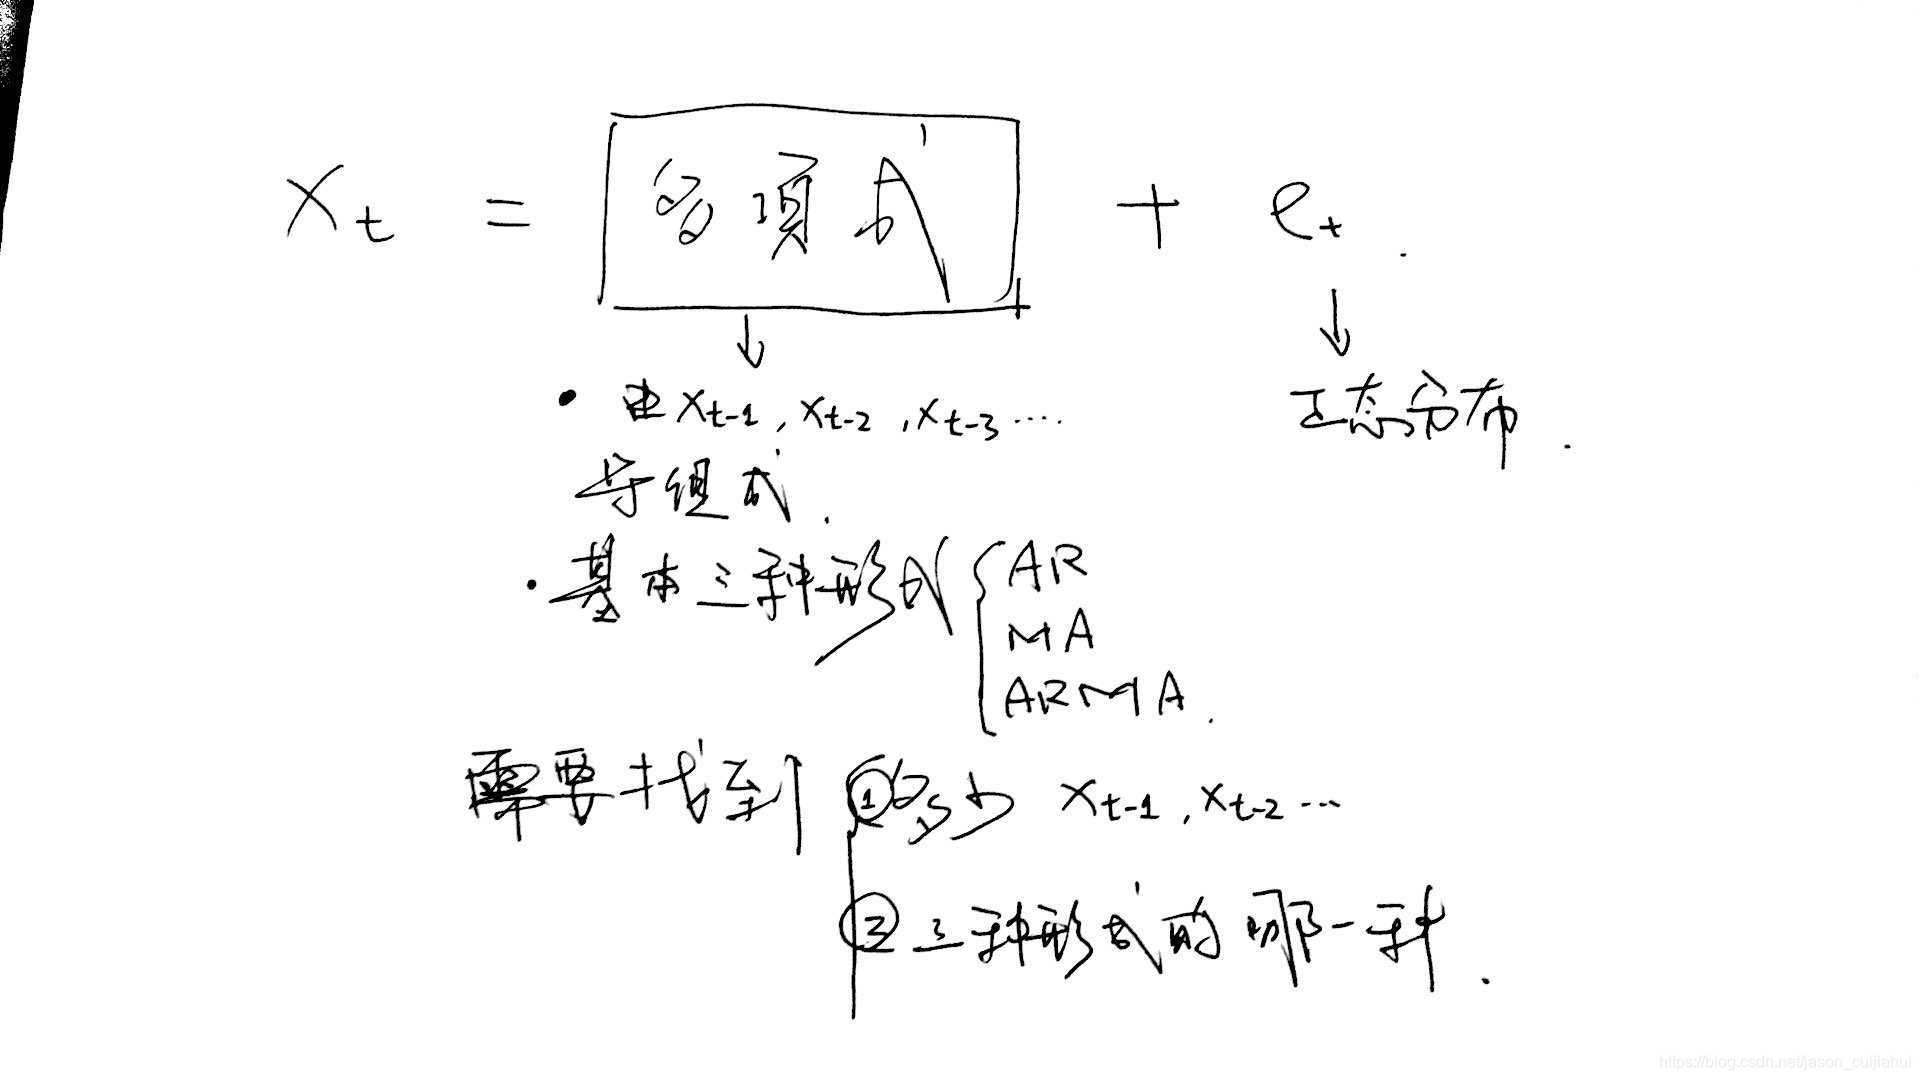 Xt = 多项式 + et.
正态分布.
• 由 Xt-1, Xt-2, Xt-3 ····
等组成.
• 基本三种形式 { AR
MA
ARMA.
需要找到 ① 多少 Xt-1, Xt-2 ···
② 三种形式的哪一种.
https://blog.csdn.net/jason_cuijiahui